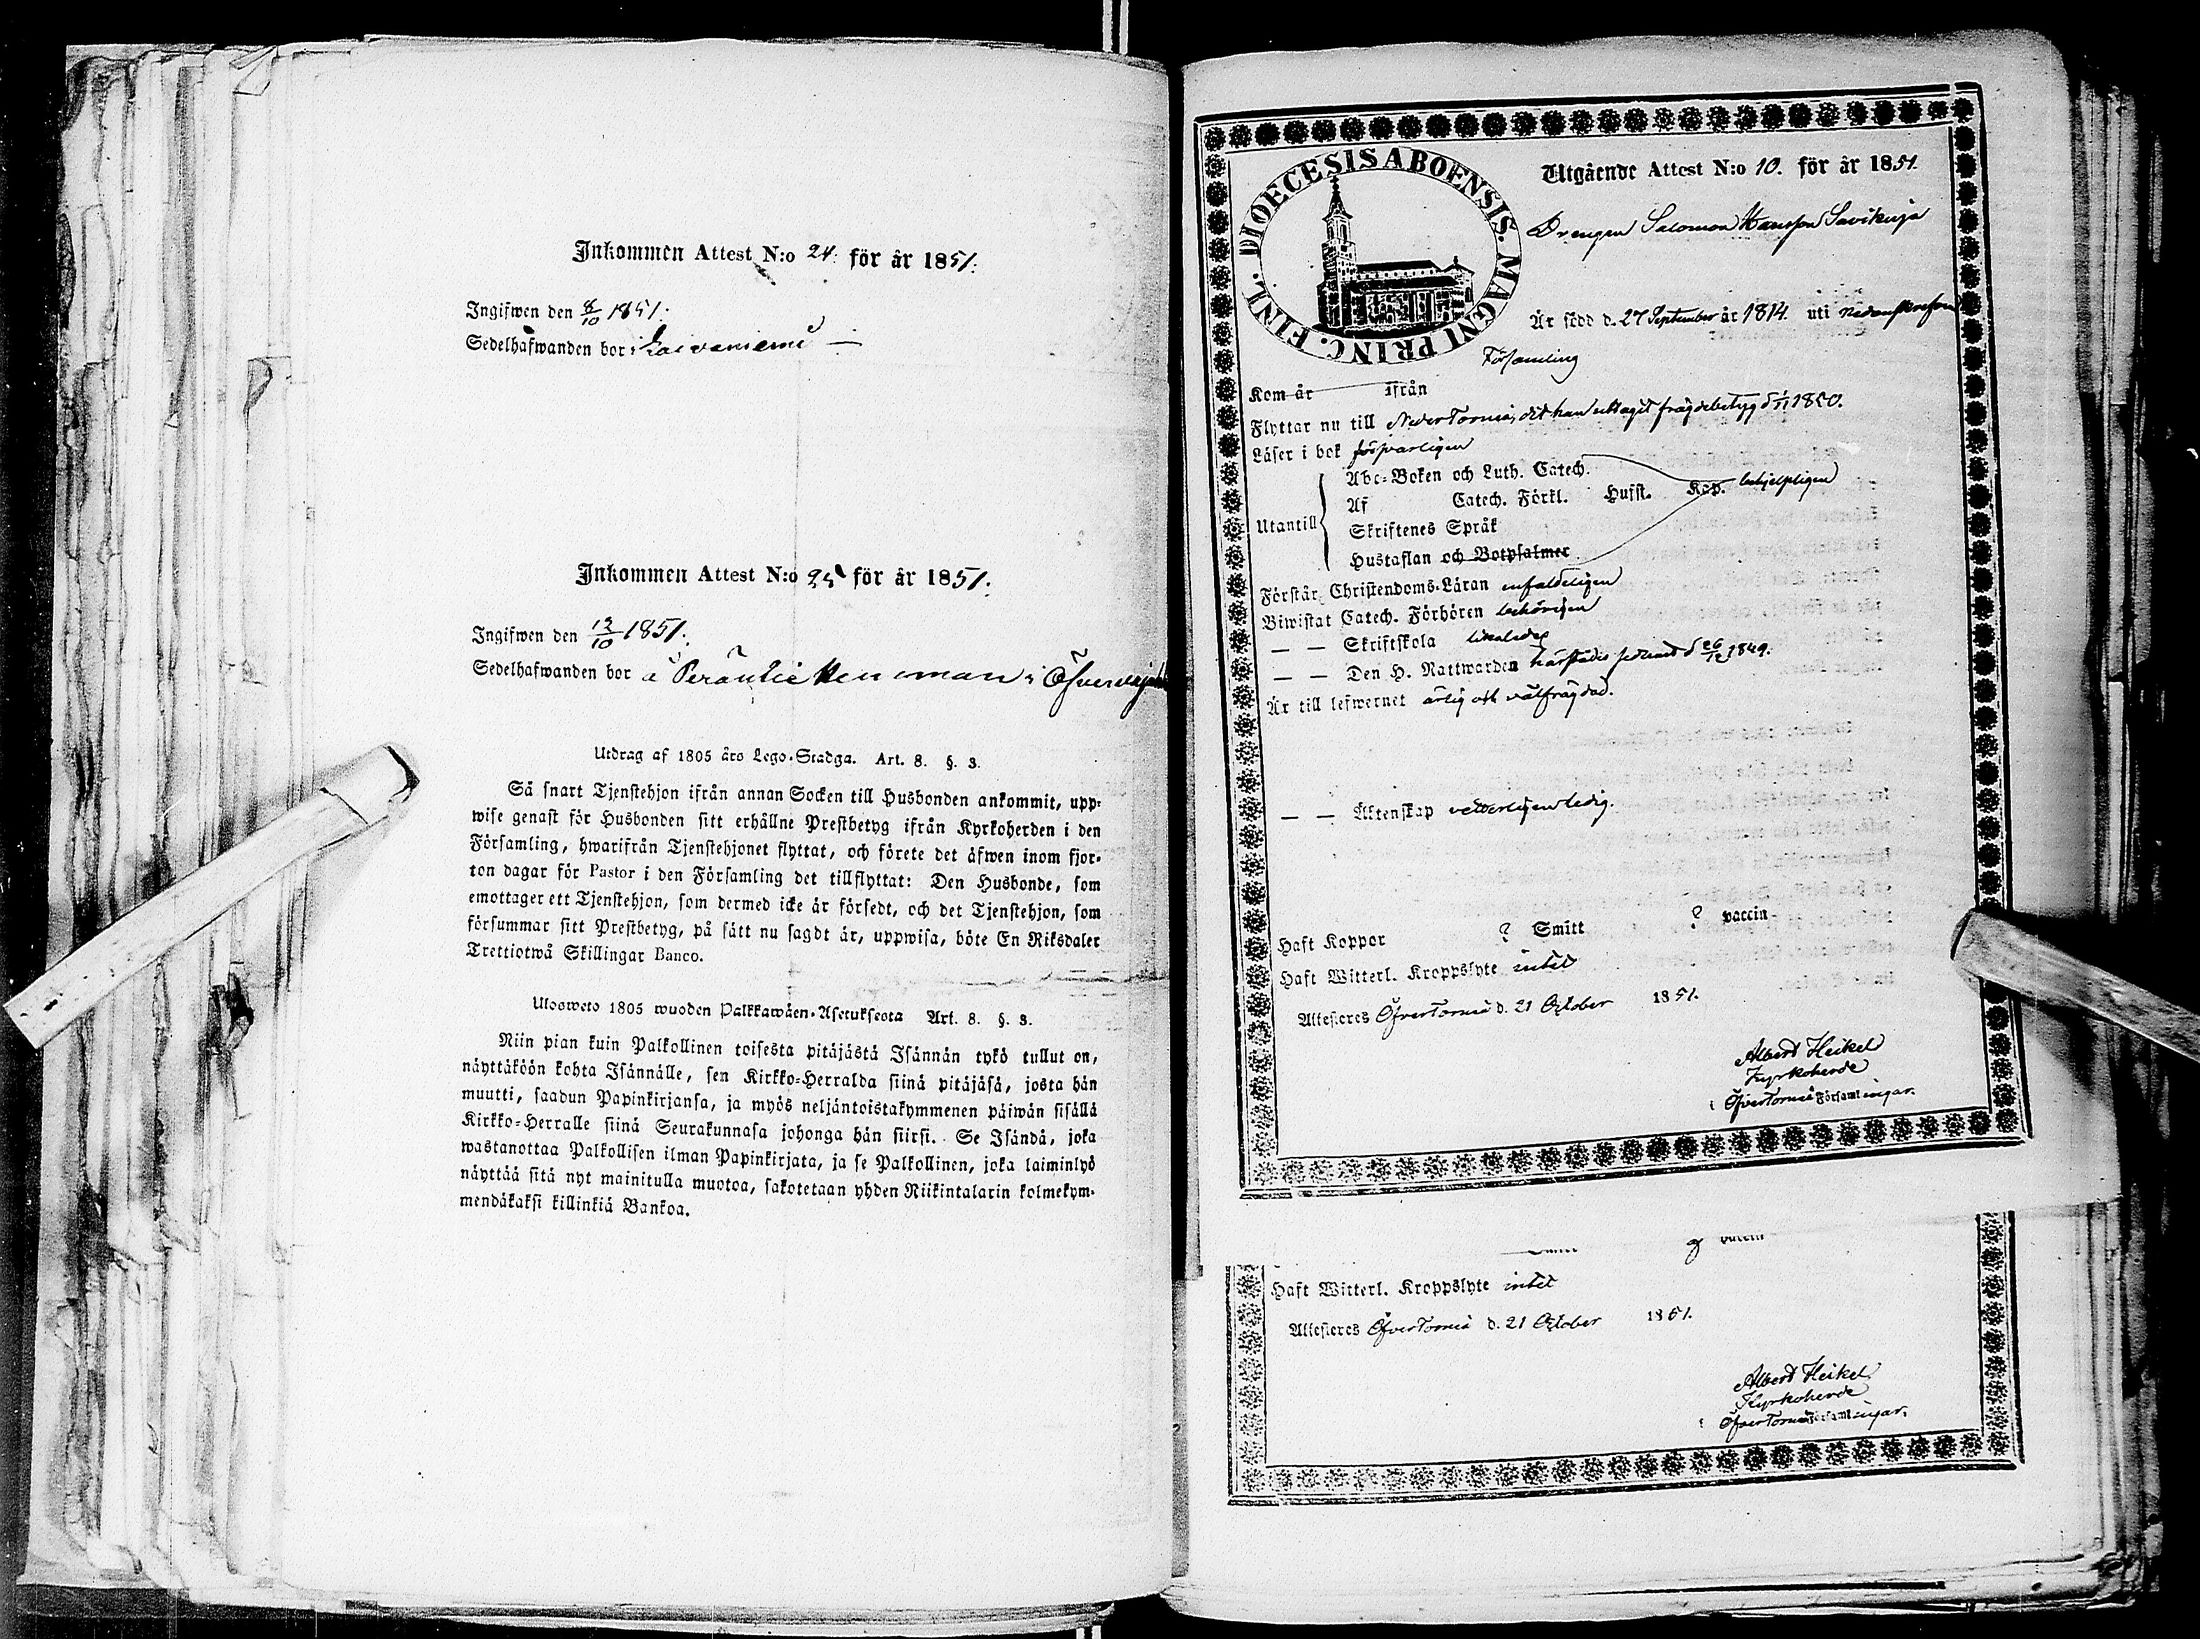 Inkommen Attest N:o 24. för år 1851.
Ingifwen den 8/10 1851.
Sedelhafwanden bor i
Inkommen Attest N:o 25 för år 1851.
Ingifwen den 13/10 1851.
Sedelhafwanden bor å
Utdrag af 1805 års Lego-Stadga. Art. 8. §. 3.
Så snart Tjenstehjon ifrån annan Socken till Husbonden ankommit, upp-
wise genast för Husbonden sitt erhållne Prestbetyg ifrån Kyrkoherden i den
Församling, hwarifrån Tjenstehjonet flyttat, och förete det äfwen inom fjor-
ton dagar för Pastor i den Församling det tillflyttat: Den Husbonde, som
emottager ett Tjenstehjon, som dermed icke är försedt, och det Tjenstehjon, som
försummar sitt Prestbetyg, på sätt nu sagdt är, uppwisa, böte En Riksdaler
Trettiotwå Skillingar Banco.
Ulosweto 1805 wuoden Palkkawäen-Asetuksesta Art. 8. §. 3.
Niin pian kuin Palkollinen toisesta pitäjästä Isännän tykö tullut on,
näyttäköön kohta Isännälle, sen Kirkko-Herralda siinä pitäjäsä, josta hän
muutti, saadun Papinkirjansa, ja myös neljäntoistakymmenen päiwän sisällä
Kirkko-Herralle siinä Seurakunnasa johonga hän siirsi. Se Isändä, joka
wastanottaa Palkollisen ilman Papinkirjata, ja se Palkollinen, joka laiminlyö
näyttää sitä nyt mainitulla muotoa, sakotetaan yhden Riikintalarin kolmekym-
mendäkaksi killinkiä Bankoa.
DIOECESIS ABOENSIS. MAGNI PRINC. FINL.
Utgående Attest N:o 10. för år 1851.
Drengen Salomon Hansson Savikuja
Är född d. 27 September år 1814. uti nedanskrefne
Församling
Kom år ifrån
Flyttar nu till Neder Torneå, dit han uttagit frägdebetyg d. 1/11 1850.
Läser i bok försvarligen
Utantill
Abc-Boken och Luth. Catech.
Af Catech. Förkl. Husst. Kop. behjelpligen
Skriftenes Språk
Hustaflan och Botpsalmer
Förstår Christendoms-Läran enfaldeligen
Biwistat Catech. Förhören behörigen
— — Skriftskola likaledes
— — Den H. Nattwarden härstädes sednast d. 26/12 1849.
Är till lefwernet ärlig och välfrägdad.
— — Äktenskap vetterligen ledig.
Haft Koppor ? Smitt ? vaccin
Haft Witterl. Kroppslyte intet
Attesteres ÖfverTorneå d. 21 October 1851.
Albert Heikel
Kyrkoherde
i ÖfverTorneå Församlingar.
vaccin
Haft Witterl. Kroppslyte intet
Attesteres ÖfverTorneå d. 21 October 1851.
Albert Heikel
Kyrkoherde
i ÖfverTorneå Församlingar.